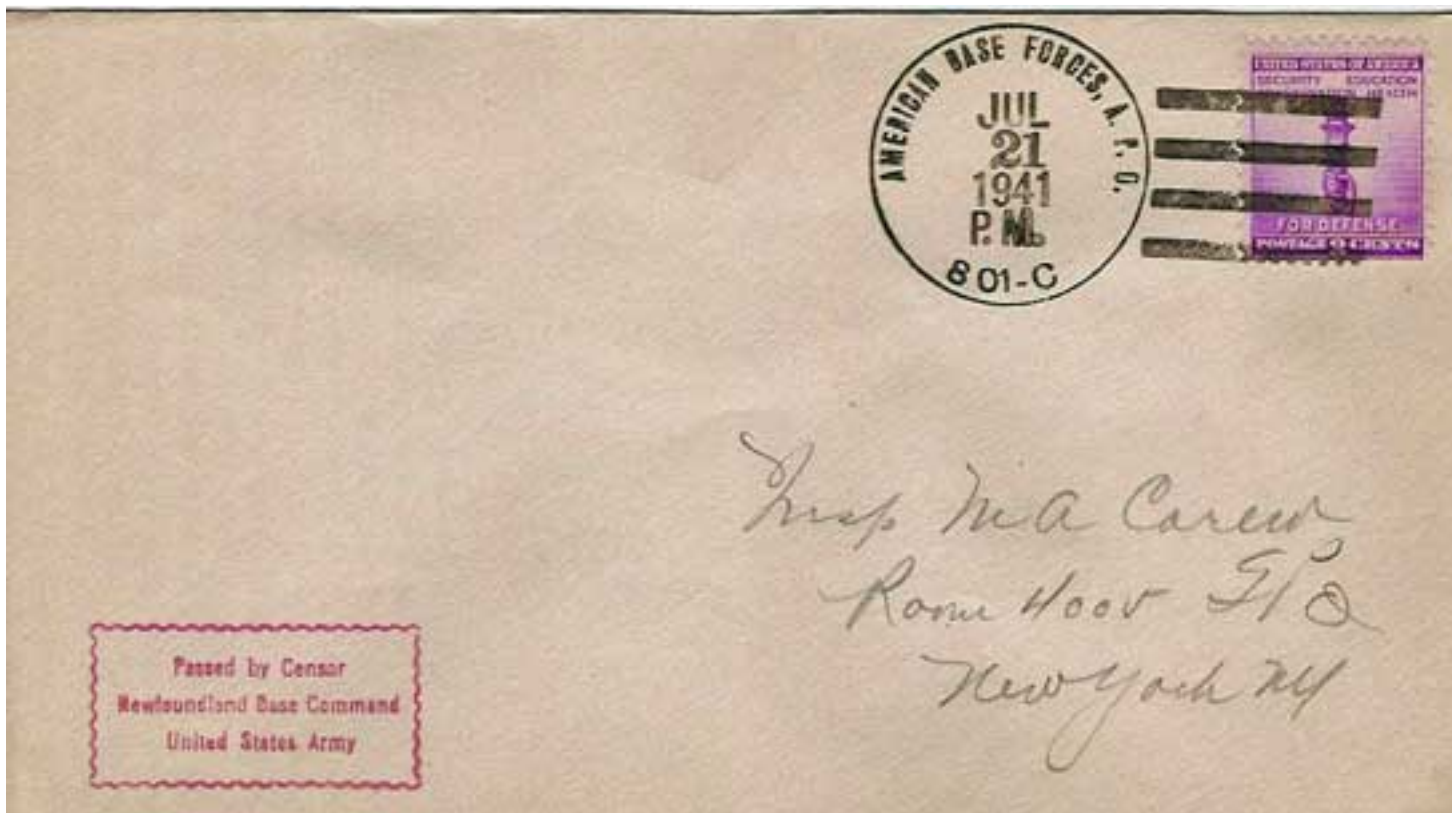 AMERICAN BASE FORCES, A. P. O.
JUL
21
1941
P. M.
801-C
UNITED STATES OF AMERICA
SECURITY EDUCATION
CONSERVATION HEALTH
FOR DEFENSE
POSTAGE 3 CENTS
Miss M A Carew
Room 4005 GPO
New York NY
Passed by Censor
Newfoundland Base Command
United States Army